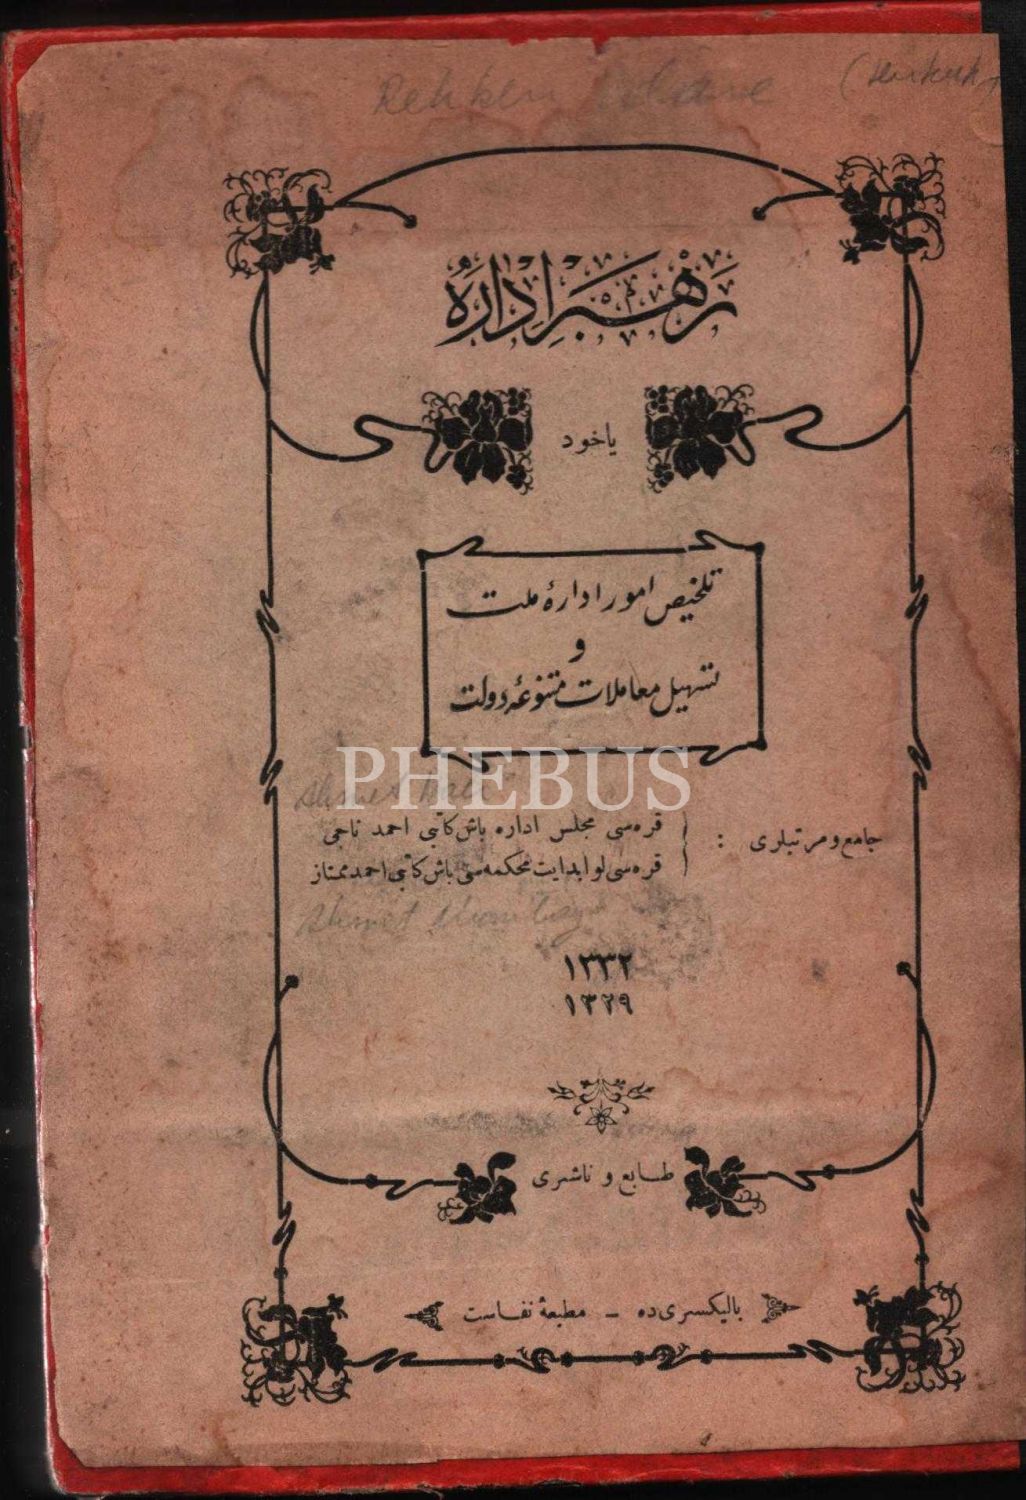 رهبر اداره
یاخود
تلخیص امور ادارهٔ ملت
و
تسهیل معاملات متنوعهٔ دولت
PHEBUS
جامع و مرتبلری :
قره‌سی مجلس اداره باش کاتبی احمد ناجی
قره‌سی لوا بدایت محکمه‌سی باش کاتبی احمد ممتاز
١٣٣٢
١٣٢٩
طابع و ناشری
بالیکسری‌ده – مطبعهٔ نفاست